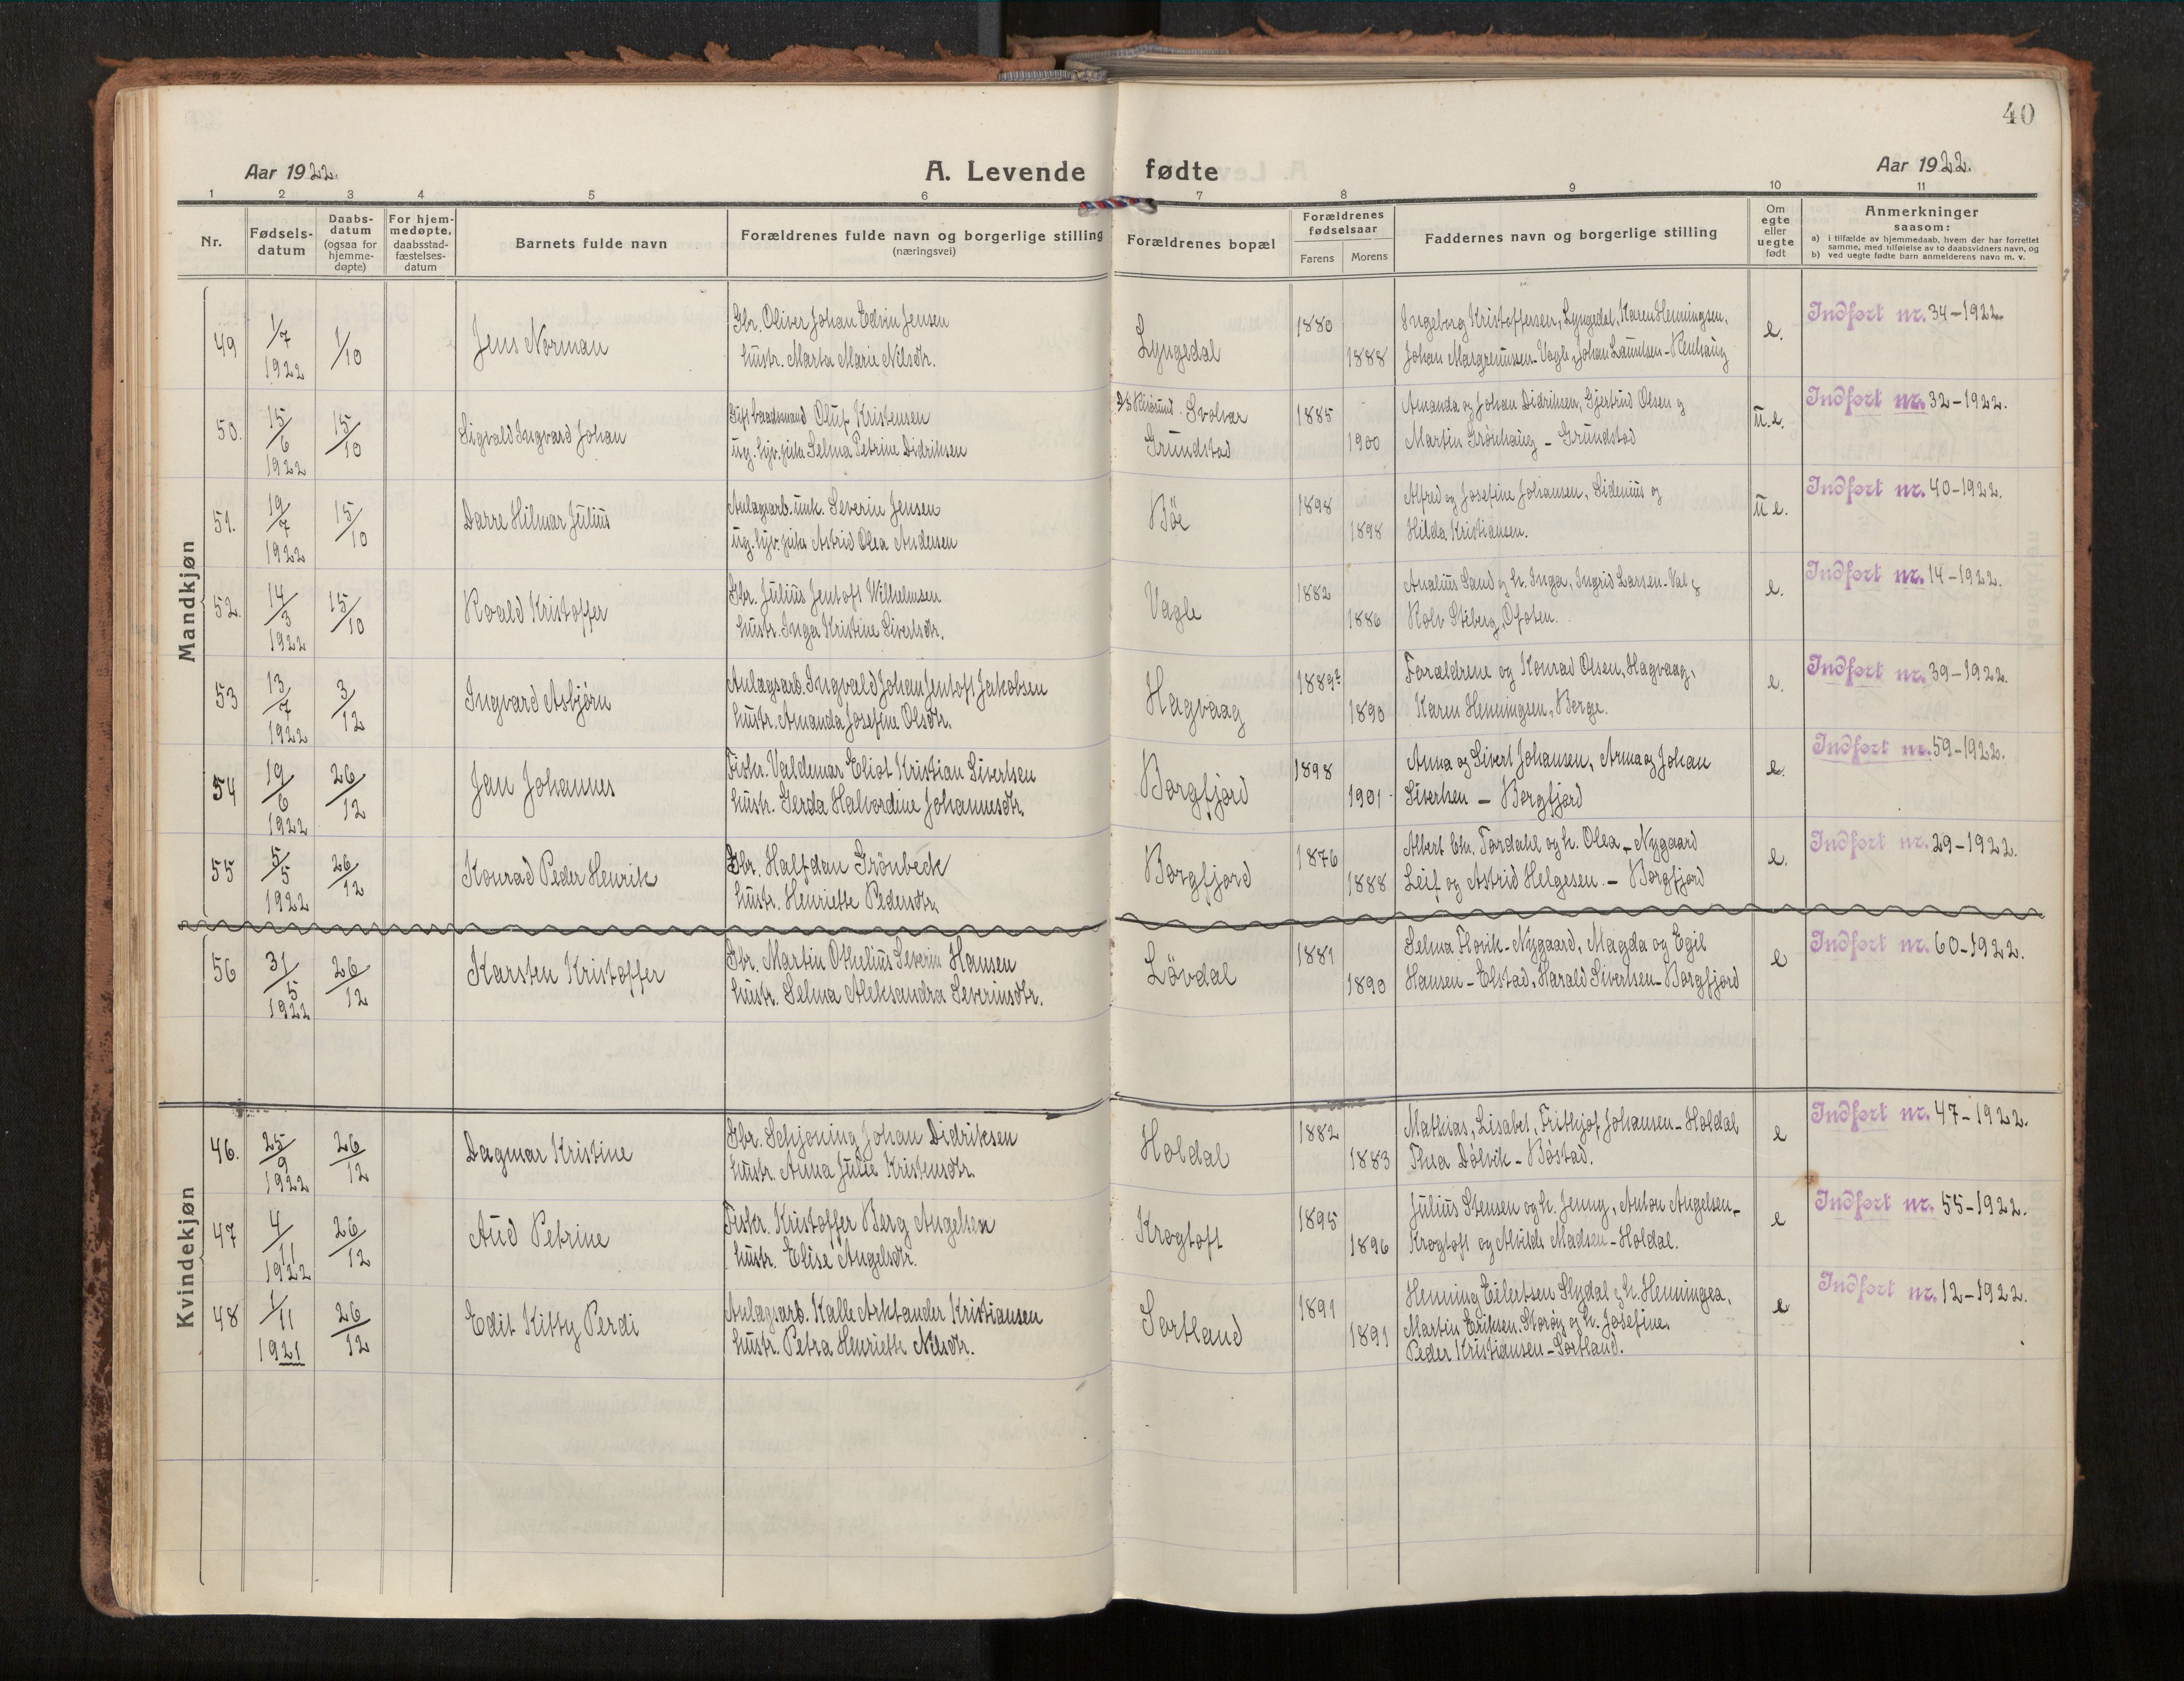 40
Aar 1922.
A. Levende fødte
Aar 1922.
1 2 3 4 5 6 7 8 9 10 11
Nr.
Fødsels-
datum
Daabs-
datum
(ogsaa for
hjemme-
døpte)
For hjem-
medøpte,
daabsstad-
fæstelses-
datum
Barnets fulde navn
Forældrenes fulde navn og borgerlige stilling
(næringsvei)
Forældrenes bopæl
Forældrenes
fødselsaar
Farens Morens
Faddernes navn og borgerlige stilling
Om
egte
eller
uegte
født
Anmerkninger
saasom:
a) i tilfælde av hjemmedaab, hvem der har forrettet
samme, med tilføielse av to daabsvidners navn, og
b) ved uegte fødte barn anmelderens navn m. v.
Mandkjøn
49 1/7 1922 1/10 Jens Norman
Gbr. Oliver Johan Edvin Jensen
hustr. Marta Marie Nilsdtr.
Lyngedal 1880 1888
Ingeborg Kristoffersen, Lyngedal, Karen Henningsen,
Johan Margrenussen - Vagle, Johan Lauritsen - Renhaug
e. Indført nr. 34-1922.
50. 15/6 1922 15/10 Sigvald Ingvard Johan
Gift baadsmand Oluf Kristensen
ug. hjv. juta Selma Petrine Didriksen
Svolvær
Grundstad 1885 1900
Amanda og Johan Didriksen, Gjertrud Olsen og
Martin Grönhaug - Grundstad
u.e. Indført nr. 32-1922.
51. 19/7 1922 15/10 Darre Hilmar Julius
Anlagsarb. unk. Severin Jensen
ug. hjv. juta Astrid Olea Andersen
Böe 1898 1898
Alfred og Josefine Johansen, Sidenius og
Hilda Kristiansen.
u.e. Indført nr. 40-1922.
52. 14/3 1922 15/10 Roald Kristoffer
Gbr. Julius Jentoft Wilhelmsen
hustr. Inga Kristine Sivertsdtr.
Vagle 1882 1886
Analius Sand og h. Inga, Ingrid Larsen - Val og
Rolv Stiberg, Ofoten.
e. Indført nr. 14-1922.
53 13/7 1922 3/12 Ingvard Asbjörn
Anlagsarb. Ingvald Johan Jentoft Jakobsen
hustr. Amanda Josefine Olsdtr.
Hagvaag 1889 1890
Forældrene og Konrad Olsen, Hagvaag,
Karen Henningsen, Borge.
e. Indført nr. 39-1922.
54 19/6 1922 26/12 Jan Johannes
Fiskr. Valdemar Eliot Kristian Sivertsen
hustr. Gerda Halvardine Johannesdtr.
Borgfjord 1898 1901
Anna og Sivert Johansen, Arna og Johan
Sivertsen - Borgfjord
e. Indført nr. 59-1922.
55 5/5 1922 26/12 Konrad Peder Henrik
Gbr. Halfdan Grönbeck
hustr. Henriette Pedersdtr.
Borgfjord 1876 1888
Albert Chr. Fardahl og h. Olea - Nygaard
Leif og Astrid Helgesen. - Borgfjord
e. Indført nr. 29-1922.
56 31/5 1922 26/12 Karsten Kristoffer
Gbr. Martin Othelius Severin Hansen
hustr. Selma Aleksandra Severinsdtr.
Lövdal 1881 1890
Selma Flovik - Nygaard, Magda og Egil
Hansen - Elstad, Harald Sivertsen - Borgfjord
e Indført nr. 60-1922.
Kvindekjøn
46. 25/9 1922 26/12 Dagmar Kristine
Gbr. Schjöning Johan Didriksen
hustr. Anna Julie Kristensdtr.
Holdal 1882 1883
Mathias, Lisabet, Frithjof Johansen - Holdal
Thea Dölvik - Böstad.
e Indført nr. 47-1922.
47 4/11 1922 26/12 Aud Petrine
Fiskr. Kristoffer Berg Angelsen
hustr. Elise Angelsdtr.
Krogtoft 1895 1896
Julius Stensen og h. Jenny, Anton Angelsen -
Krogtoft og Alvilde Madsen - Holdal.
e Indført nr. 55-1922.
48 1/11 1921 26/12 Edit Kitty Perdi
Anlagsarb. Kalle Arktander Kristiansen
hustr. Petra Henriette Nilsdtr.
Sortland 1891 1891
Henning Eilertsen Slydal og h. Henningea,
Martin Eriksen, Storöy og h. Josefine,
Peder Kristiansen - Sortland.
e Indført nr. 12-1922.